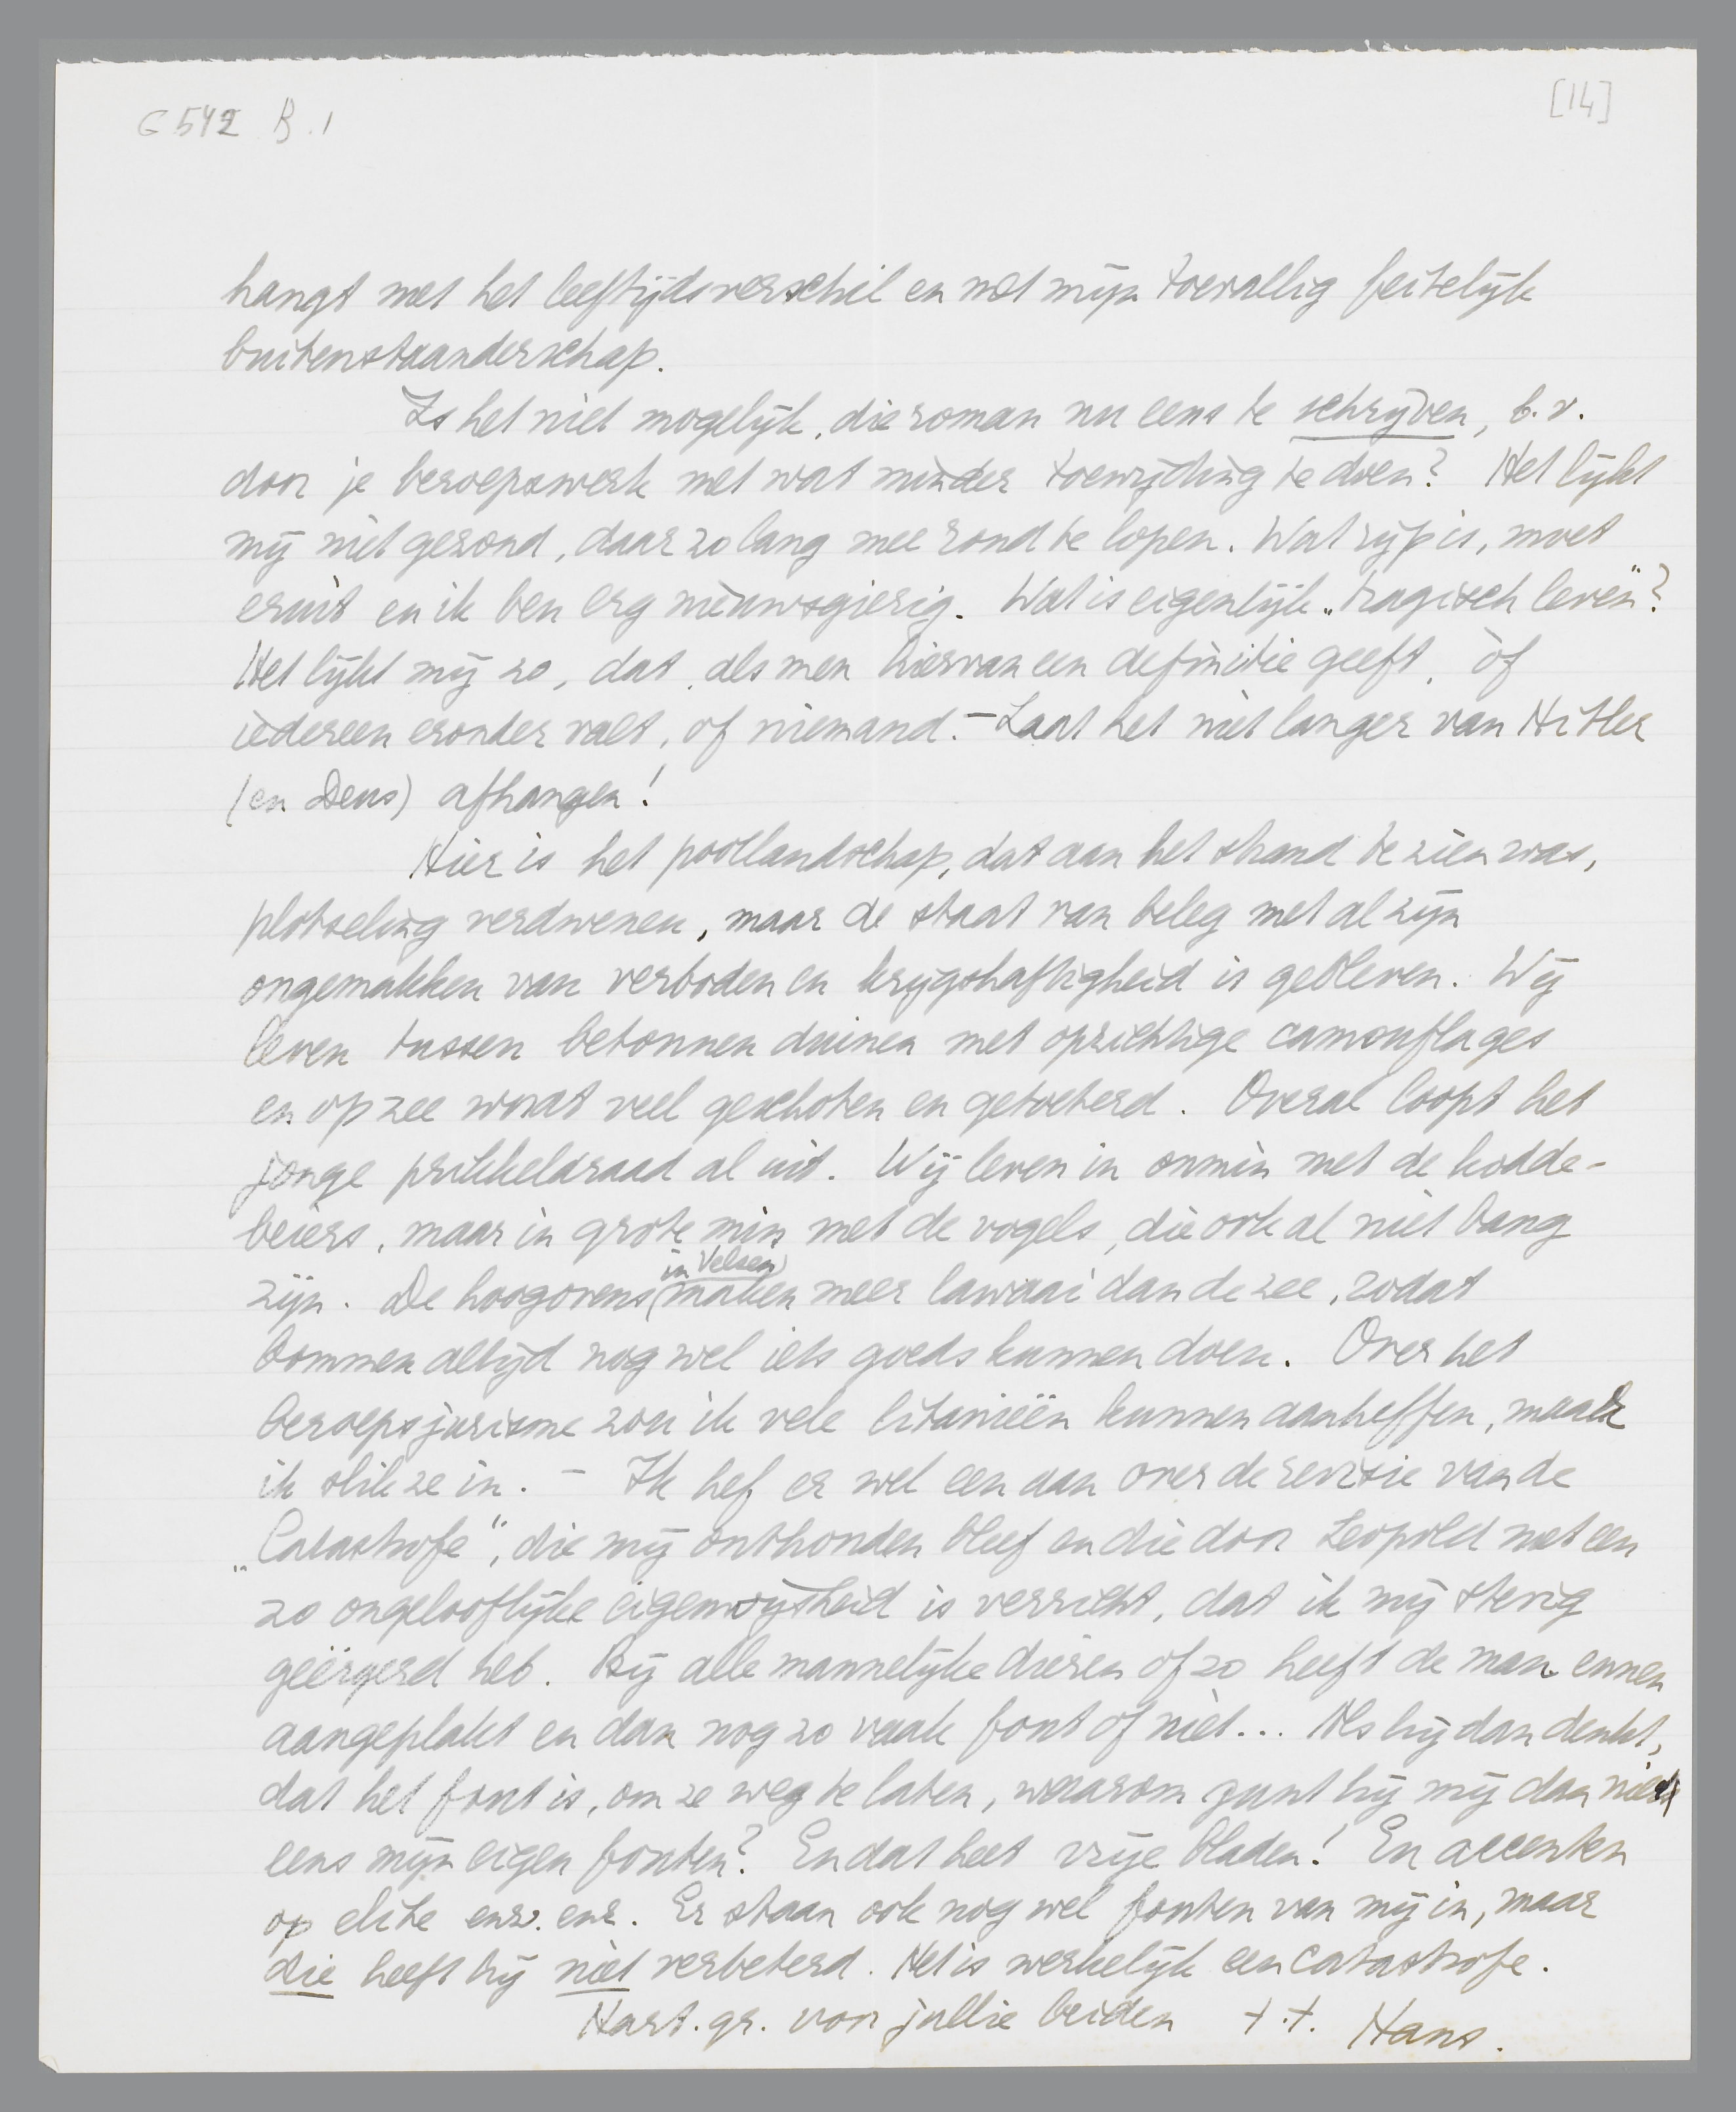 G 542 B.1
[14]
hangt met het leeftijdsverschil en met mijn toevallig feitelijk
buitenstaanderschap.
Is het niet mogelijk, die roman nu eens te schrijven, b.v.
door je beroepswerk met wat minder toewijding te doen? Het lijkt
mij niet gezond, daar zo lang mee rond te lopen. Wat rijp is, moet
eruit en ik ben erg nieuwsgierig. Wat is eigenlijk „tragisch leven"?
Het lijkt mij zo, dat, als men hiervan een definitie geeft, òf
iedereen eronder valt, of niemand. – Laat het niet langer van Hitler
(en Deus) afhangen!
Hier is het poollandschap, dat aan het strand te zien was,
plotseling verdwenen, maar de staat van beleg met al zijn
ongemakken van verboden en krijgshaftigheid is gebleven. Wij
leven tussen betonnen duinen met oprichtige camouflages
en op zee wordt veel geschoten en getoeterd. Overal loopt het
jonge prikkeldraad al uit. Wij leven in onmin met de kodde-
beiers, maar in grote min met de vogels, die ook al niet bang
zijn. De hoogovens (in Velsen) maken meer lawaai dan de zee, zodat
bommen altijd nog wel iets goeds kunnen doen. Over het
beroepsjurisme zou ik vele litanieën kunnen aanheffen, maar
ik slik ze in. – Ik hef er wel een aan over de revisie van de
„Catastrofe", die mij onthouden bleef en die door Leopold met een
zo ongelooflijke eigenwijsheid is verricht, dat ik mij stevig
geërgerd heb. Bij alle mannelijke dieren of zo heeft de man ennen
aangeplakt en dan nog zo vaak fout of niet... Als hij dan denkt,
dat het fout is, om ze weg te laten, waarom gunt hij mij dan niet
eens mijn eigen fouten? En dat heet vrije bladen! En accenten
op elite enz. enz. Er staan ook nog wel fouten van mij in, maar
die heeft hij niet verbeterd. Het is werkelijk een catastrofe.
Hart. gr. voor jullie beiden t.t. Hans.